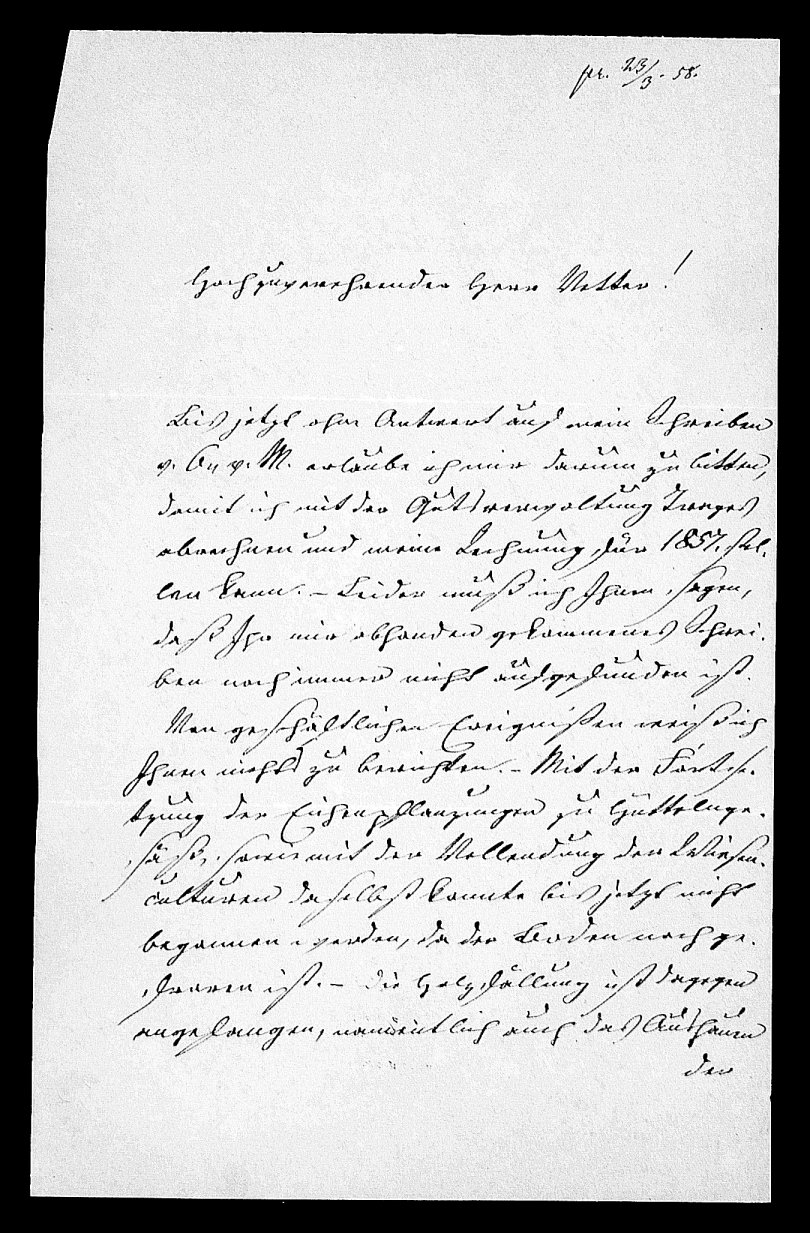 pr. 23/3. 58.
Hochzuverehrender Herr Vetter!
Bis jetzt ohne Antwort auf mein Schreiben
v. v. M. erlaube ich mir darum zu bitten,
damit ich mit der Gutsverwaltung Trages
abrechnen und meine Rechnung für 1857. stel-
len kann. – Leider muß ich Ihnen sagen,
daß Ihr mir abhanden gekommenes Schrei-
ben noch immer nicht aufgefunden ist.
Von geschäftlichen Ereignißen weiß ich
Ihnen nichts zu berichten. – Mit der Fortse-
tzung der Eichenpflanzungen zu Hüttelnge-
säß, sowie mit der Vollendung der Wiesen-
culturen daselbst konnte bis jetzt nicht
begonnen werden, da der Boden noch ge-
froren ist. – Die Holzfällung ist dagegen
angefangen, namentlich auch das Aushauen
der